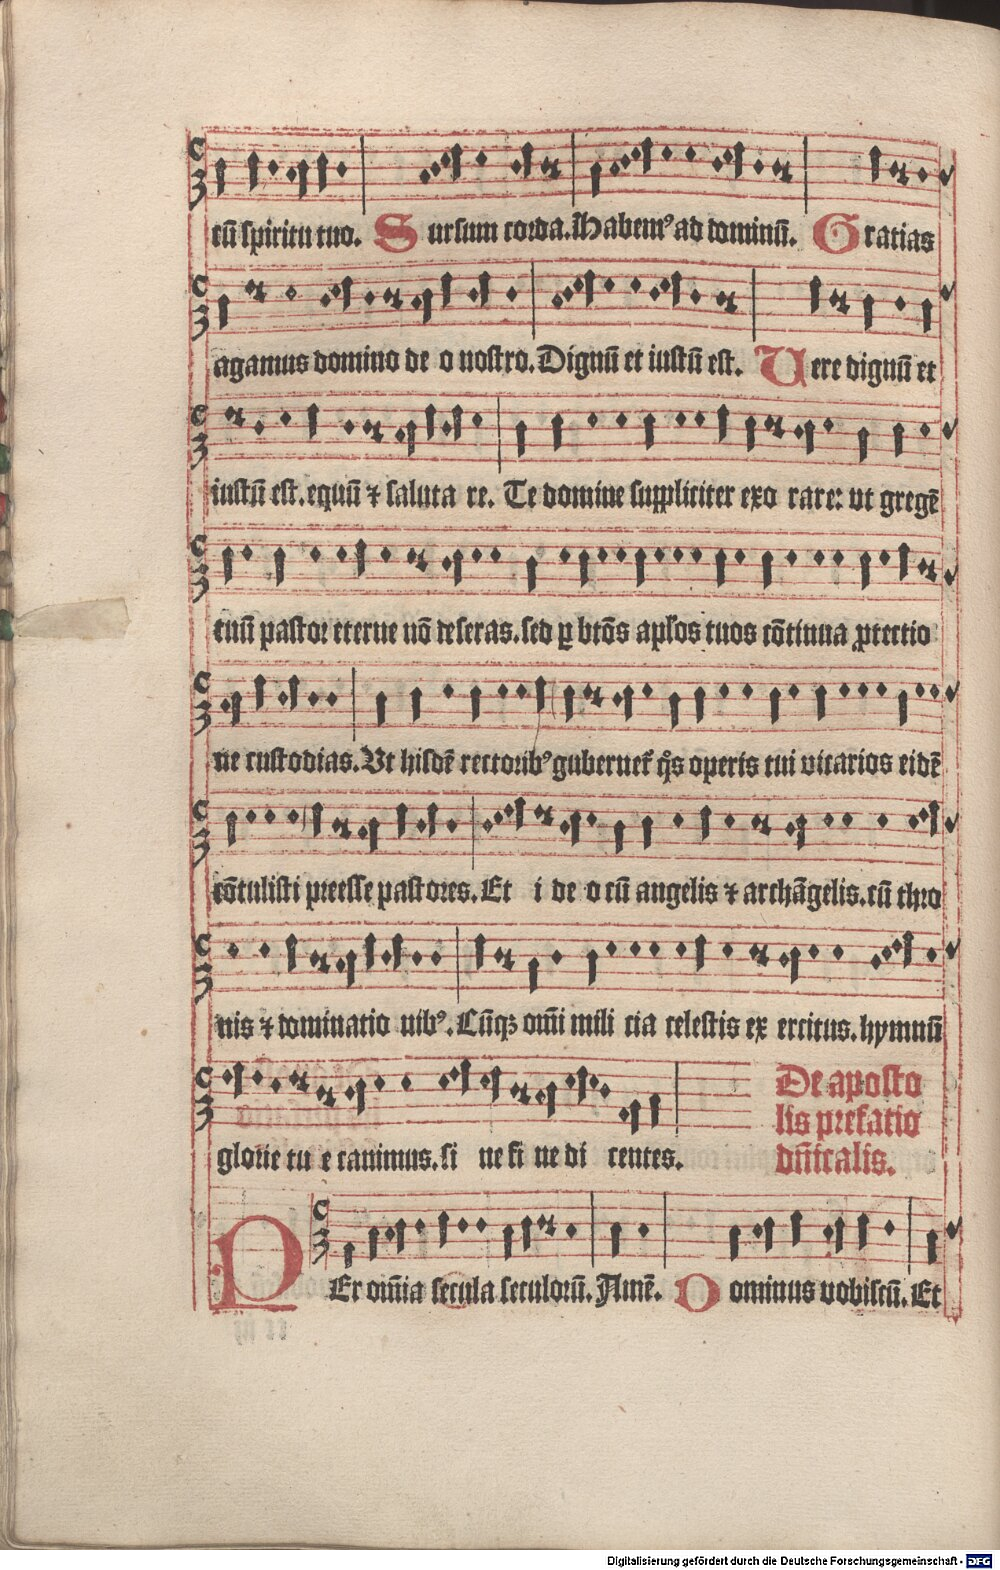 cū spiritu tuo. Sursum corda. Habemꝰ ad dominū. Gratias
agamus domino deo nostro. Dignū et iustū est. Vere dignū et
iustū est. equū ⁊ salutare. Te domine suppliciter exorare: ut gregē
tuū pastor eterne nō deseras. sed ꝑ btōs apl'os tuos cōtinua ꝓtectio
ne custodias. Vt hisdē rectoribꝰ gubernet' q̄s operis tui vicarios eidē
cōtulisti preesse pastores. Et ideo cū angelis ⁊ archāgelis. cū thro
nis ⁊ dominationibꝰ. Cūqꝫ om̄i militia celestis exercitus. hymnū
glorie tue canimus. sine fine dicentes.
De aposto
lis prefatio
dn̄icalis.
PEr om̄ia secula seculorū. Amē. Dominus vobiscū. Et
Digitalisierung gefördert durch die Deutsche Forschungsgemeinschaft - DFG